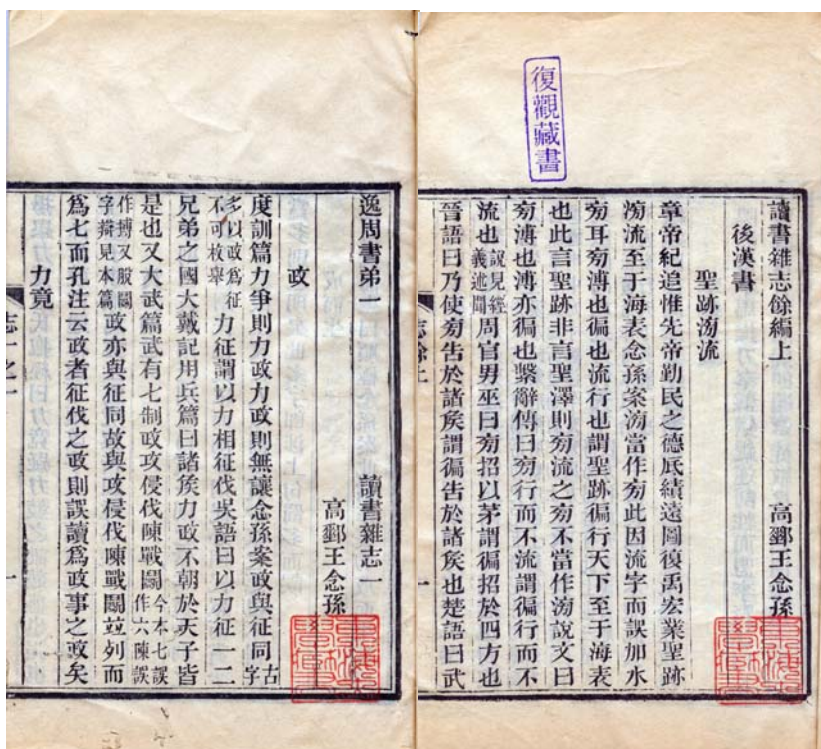 復觀藏書
讀書雜志餘編上
高郵王念孫
後漢書
聖跡滂流
章帝紀追惟先帝勤民之德厎績遠圖復禹宏業聖跡
滂流至于海表念孫案滂當作旁此因流字而誤加水
旁耳旁溥也徧也流行也謂聖跡徧行天下至于海表
也此言聖跡非言聖澤則旁流之旁不當作滂說文曰
旁溥也溥亦徧也繫辭傳曰旁行而不流謂徧行而不
流也說見經義述聞周官男巫曰旁招以茅謂徧招於四方也
晉語曰乃使旁告於諸矦謂徧告於諸矦也楚語曰武
志餘上
一
逸周書弟一
讀書雜志一
高郵王念孫
政
度訓篇力爭則力政力政則無讓念孫案政與征同古字
多以政爲征不可枚舉力征謂以力相征伐吳語曰以力征一二
兄弟之國大戴記用兵篇曰諸矦力政不朝於天子皆
是也又大武篇武有七制政攻侵伐陳戰鬭今本七誤作六陳誤
作搏又脫鬭字辯見本篇政亦與征同故與攻侵伐陳戰鬭竝列而
爲七而孔注云政者征伐之政則誤讀爲政事之政矣
力竟
志一之一
一